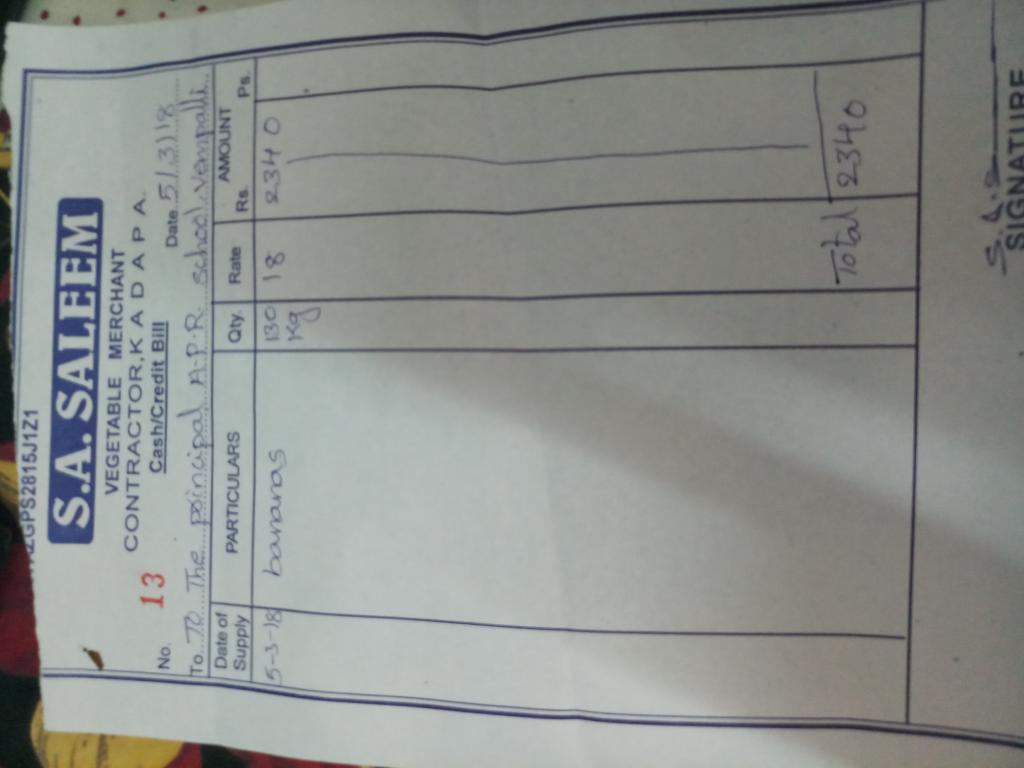 ZGPS2815J1Z1
S.A. SALEEM
VEGETABLE MERCHANT
CONTRACTOR, K A D A P A.
Cash/Credit Bill
No. 13 Date 5/3/18
To To The principal A.P.R. school. vempalli
Date of Supply PARTICULARS Qty. Rate AMOUNT Rs. Ps.
5-3-18 bananas 130 Kg 18 2340
Total 2340
SIGNATURE